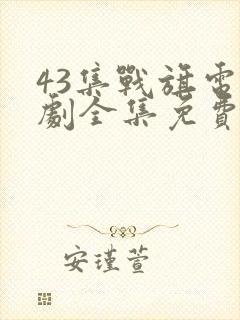 43集戰旗電
劇全集免費
安瑾萱